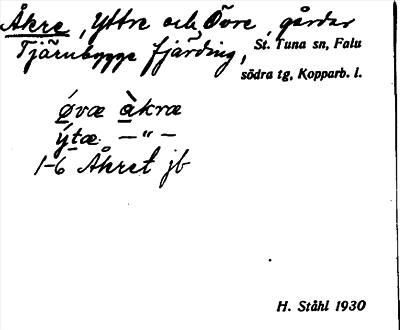 Åkre, Yttre och Övre, gårdar
Tjärnbygge fjärding, St. Tuna sn, Falu
södra tg, Kopparb. l.
ǿvæ àkræ
ýtæ — " —
1-6 Åkret jb
H. Ståhl 1930